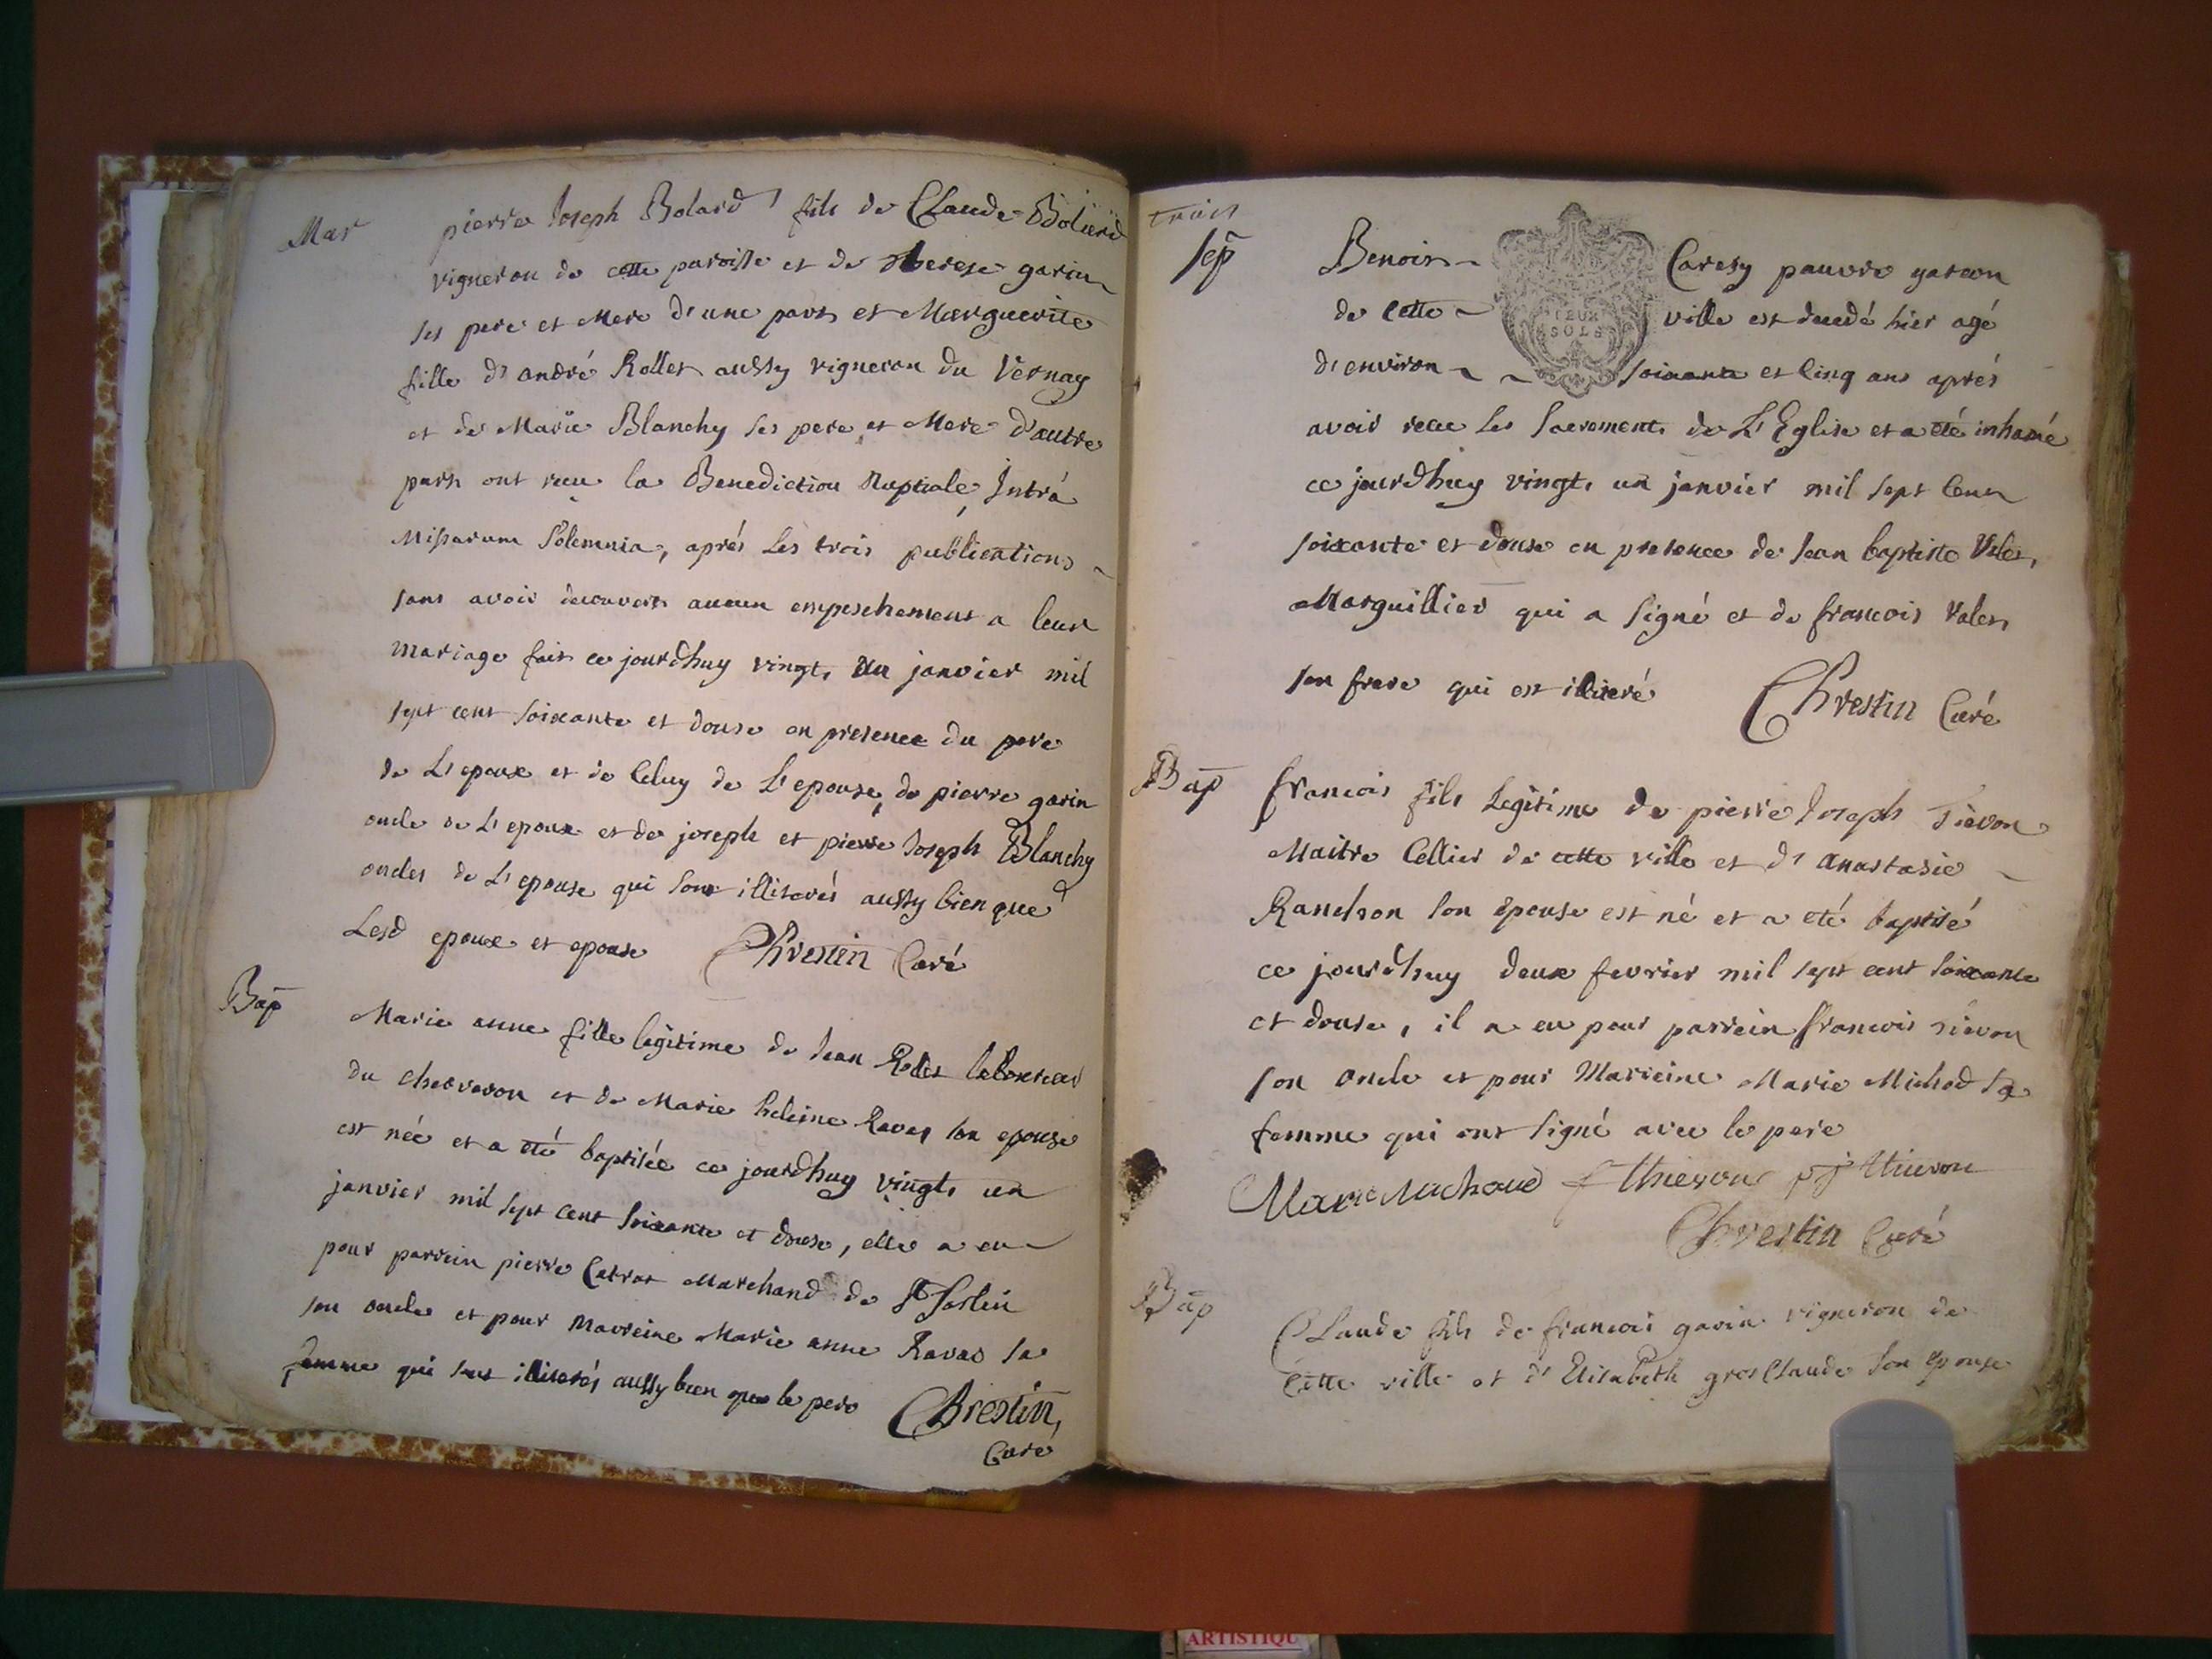 Mar
pierre Joseph Bolard fils de Claude Bolard
vigneron de cette paroisse et de therese garin
ses pere et Mere d'une part et Marguerite
fille d'andré Rollet aussy vigneron du Vernay
et de Marie Blanchy ses pere et Mere d'autre
part ont recu la Benediction Nuptiale, Intrá
Missarum Solemnia, aprés Les trois publications
sans avoir decouvert aucun empeschement a leur
mariage fait ce jourdhuy vingt, un janvier mil
sept cent soixante et douse en presence du pere
de L'epoux et de Celuy de L'epouse, de pierre garin
oncle de L'epoux et de joseph et pierre Joseph Blanchy
oncles de L'epouse qui sont illiterés aussy bien que
Lesd epoux et epouse Chrestin Curé
Bap
Marie anne fille legitime de Jean Rollet laboureur
du cherveron et de Marie heleine Ravas son epouse
est née et a eté baptisée ce jourdhuy vingt, un
janvier mil sept cent soixante et douse, elle a eu
pour parrein pierre Catrat Marchand de St Jorlin
son oncle et pour Marreine Marie anne Ravas sa
femme qui sont illiterés aussy bien que le pere Chrestin,
Curé
trois
Sep
Benoit Caresy pauvre garcon
DEUX
SOLS
de Cette ville est decedé hier agé
d'environ soixante et Cinq ans aprés
avoir recu Les Sacrements de L'Eglise et a eté inhumé
ce jourdhuy vingt, un janvier mil sept Cent
soixante et douse en presence de Jean baptiste Valet,
Marguillier qui a Signé et de francois Valet
son frere qui est illiteré Chrestin Curé
Bap
francois fils Legitime de pierre Joseph Tievon
Maitre Cellier de cette ville et d'anastasie
Randson son Epouse est né et a eté baptisé
ce jourdhuy deux fevrier mil sept cent soixante
et douse, il a eu pour parrein francois tievon
son oncle et pour Marreine Marie Michod sa
femme qui ont Signé avec le pere
Marie Michaud f thievon pj thievon
Chrestin Curé
Bap
Claude fils de francois garin vigneron de
Cette ville et d'Elisabeth gros Claude son epouse
ARTISTIQU